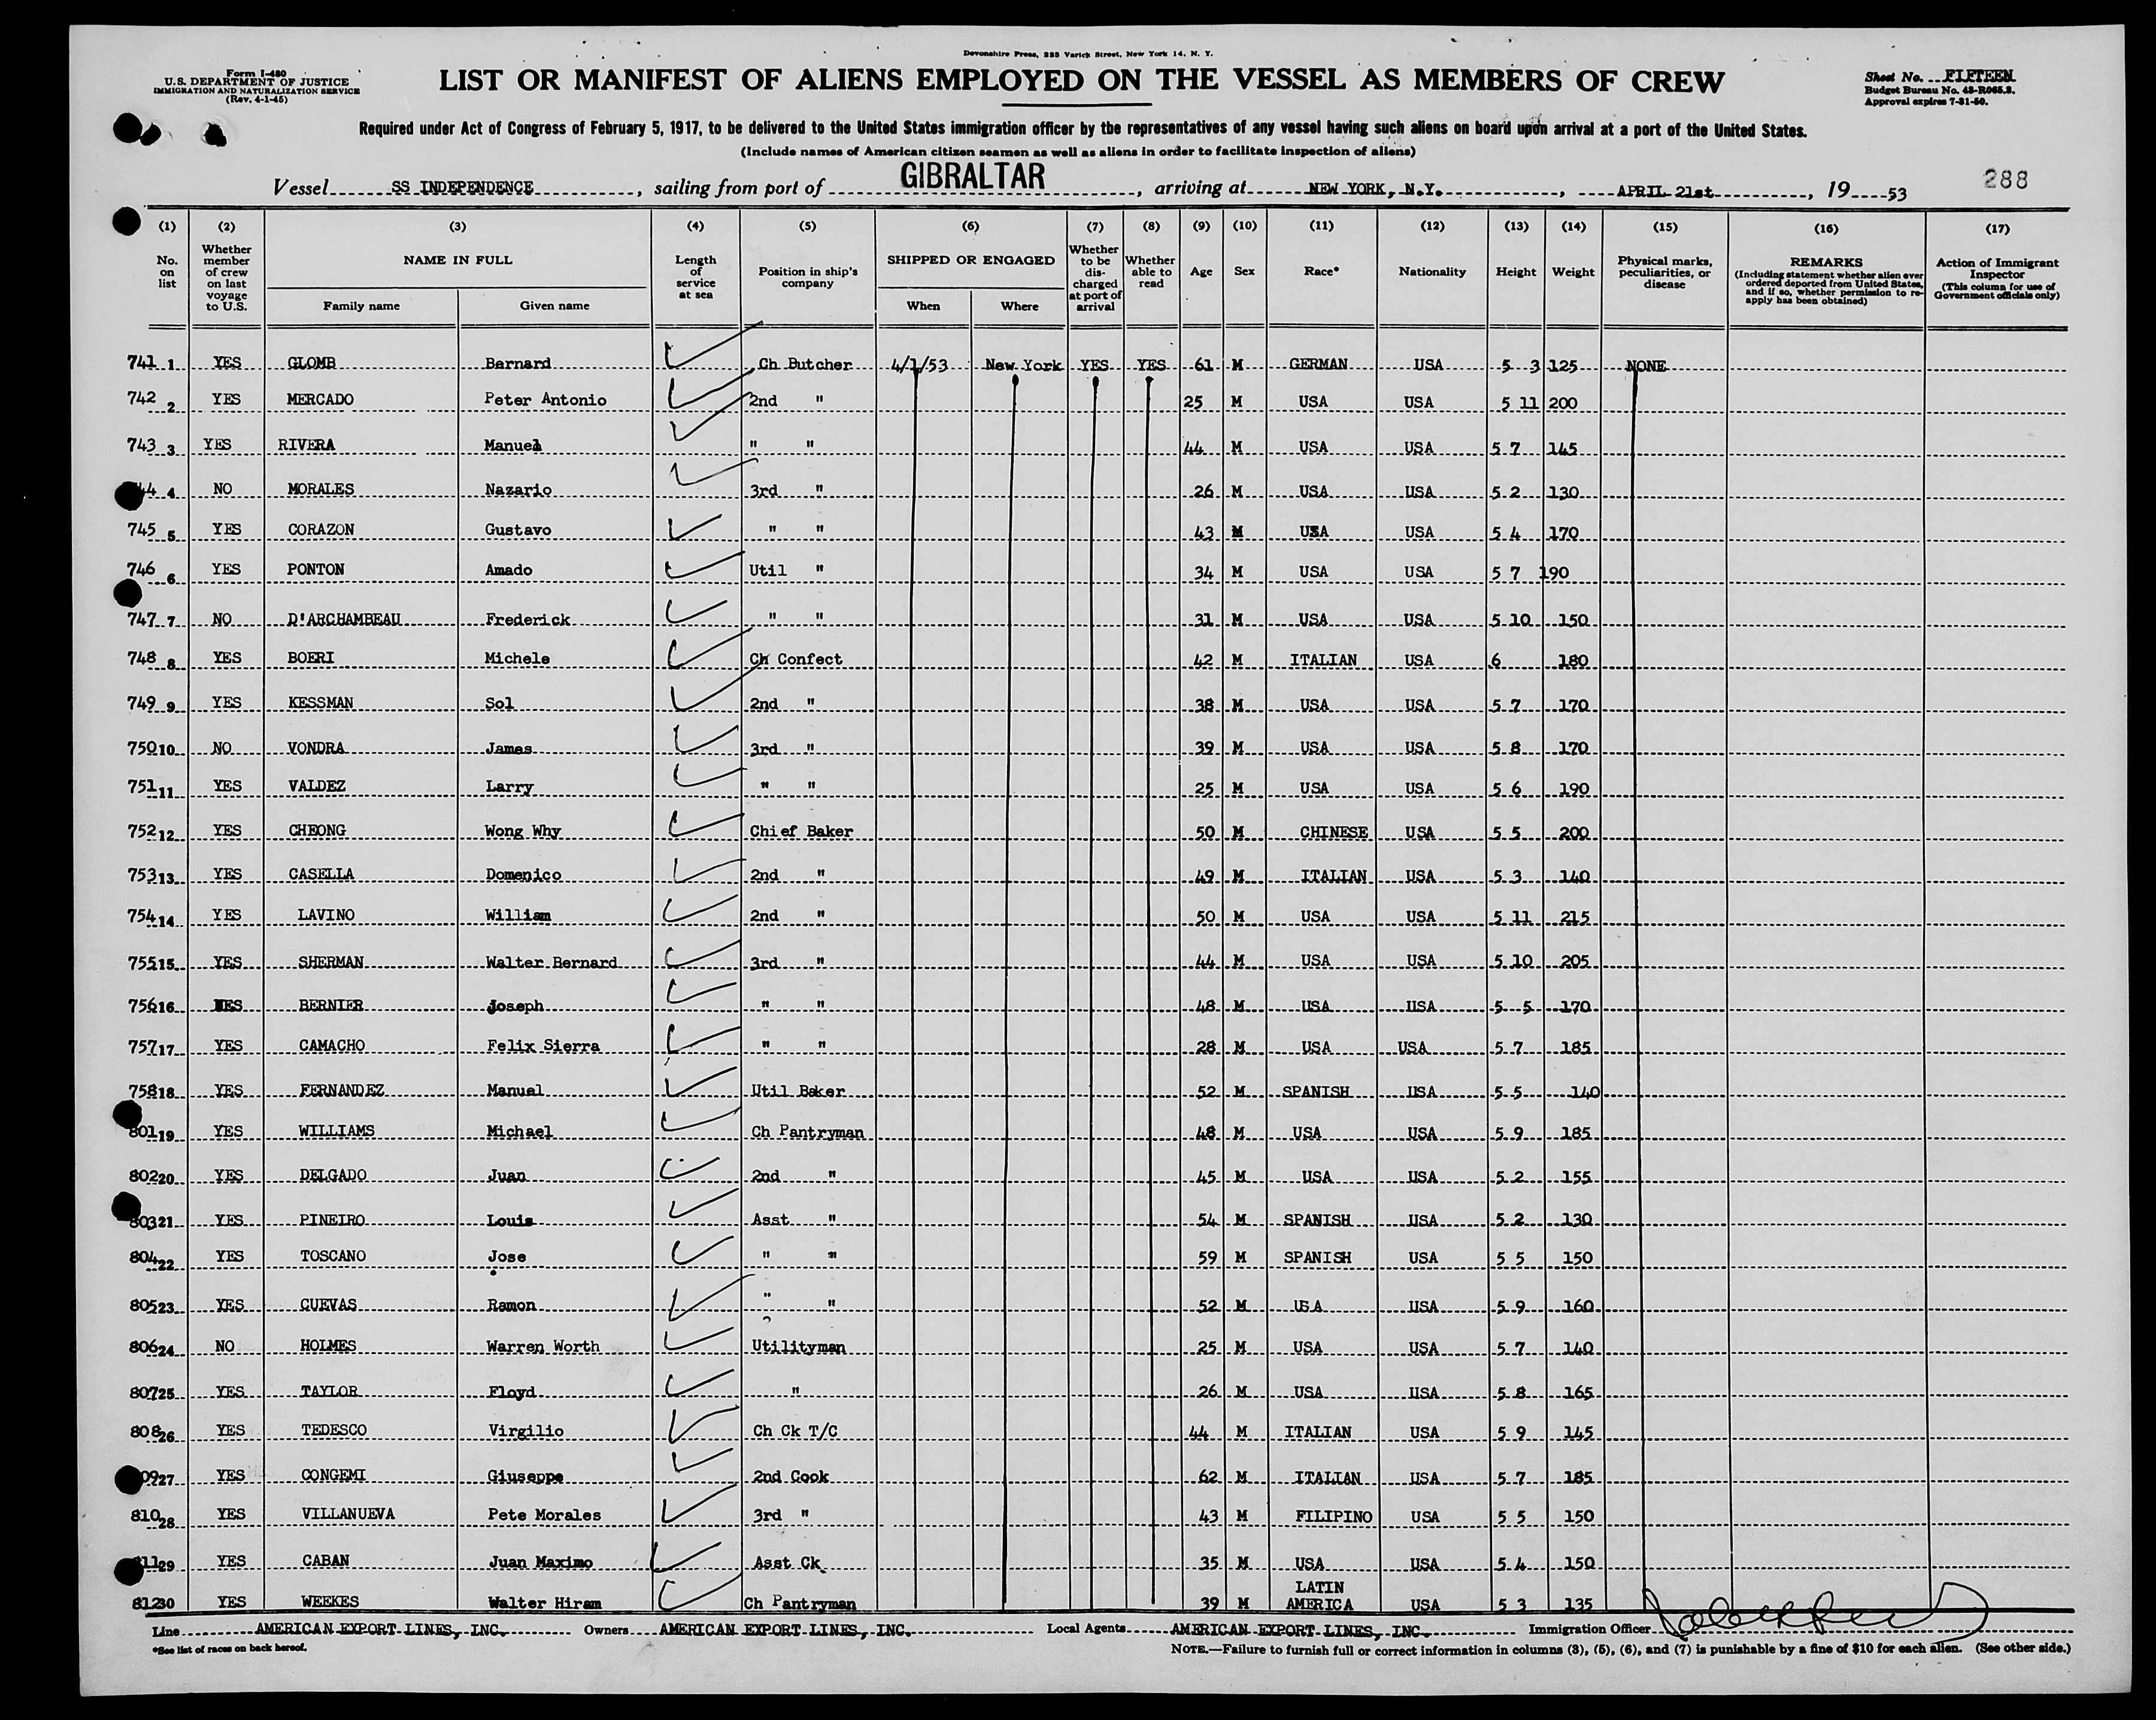 Devonshire Press, 225 Varick Street, New York 14, N. Y.
Form I-480
U.S. DEPARTMENT OF JUSTICE
IMMIGRATION AND NATURALIZATION SERVICE
(Rev. 4-1-45)
LIST OR MANIFEST OF ALIENS EMPLOYED ON THE VESSEL AS MEMBERS OF CREW
Sheet No. FIFTEEN
Budget Bureau No. 43-R065.3.
Approval expires 7-31-50.
Required under Act of Congress of February 5, 1917, to be delivered to the United States immigration officer by the representatives of any vessel having such aliens on board upon arrival at a port of the United States.
(Include names of American citizen seamen as well as aliens in order to facilitate inspection of aliens)
Vessel SS INDEPENDENCE, sailing from port of GIBRALTAR, arriving at NEW YORK, N.Y., APRIL 21st, 19 53
288
(1) (2) (3) (4) (5) (6) (7) (8) (9) (10) (11) (12) (13) (14) (15) (16) (17)
No. on list
Whether member of crew on last voyage to U.S.
NAME IN FULL
Family name
Given name
Length of service at sea
Position in ship's company
SHIPPED OR ENGAGED
When
Where
Whether to be discharged at port of arrival
Whether able to read
Age
Sex
Race*
Nationality
Height
Weight
Physical marks, peculiarities, or disease
REMARKS
(Including statement whether alien ever ordered deported from United States, and if so, whether permission to re-apply has been obtained)
Action of Immigrant Inspector
(This column for use of Government officials only)
741 1 YES GLOMB Bernard Ch Butcher 4/1/53 New York YES YES 61 M GERMAN USA 5 3 125 NONE
742 2 YES MERCADO Peter Antonio 2nd " 25 M USA USA 5 11 200
743 3 YES RIVERA Manuel " " 44 M USA USA 5 7 145
44 4 NO MORALES Nazario 3rd " 26 M USA USA 5 2 130
745 5 YES CORAZON Gustavo " " 43 M USA USA 5 4 170
746 6 YES PONTON Amado Util " 34 M USA USA 5 7 190
747 7 NO D'ARCHAMBEAU Frederick " " 31 M USA USA 5 10 150
748 8 YES BOERI Michele Ch Confect 42 M ITALIAN USA 6 180
749 9 YES KESSMAN Sol 2nd " 38 M USA USA 5 7 170
750 10 NO VONDRA James 3rd " 39 M USA USA 5 8 170
751 11 YES VALDEZ Larry " " 25 M USA USA 5 6 190
752 12 YES CHEONG Wong Why Chief Baker 50 M CHINESE USA 5 5 200
753 13 YES CASELLA Domenico 2nd " 49 M ITALIAN USA 5 3 140
754 14 YES LAVINO William 2nd " 50 M USA USA 5 11 215
755 15 YES SHERMAN Walter Bernard 3rd " 44 M USA USA 5 10 205
756 16 YES BERNIER Joseph " " 48 M USA USA 5 5 170
757 17 YES CAMACHO Felix Sierra " " 28 M USA USA 5 7 185
758 18 YES FERNANDEZ Manuel Util Baker 52 M SPANISH USA 5 5 140
801 19 YES WILLIAMS Michael Ch Pantryman 48 M USA USA 5 9 185
802 20 YES DELGADO Juan 2nd " 45 M USA USA 5 2 155
803 21 YES PINEIRO Louis Asst " 54 M SPANISH USA 5 2 130
804 22 YES TOSCANO Jose " " 59 M SPANISH USA 5 5 150
805 23 YES CUEVAS Ramon " " 52 M USA USA 5 9 160
806 24 NO HOLMES Warren Worth Utilityman 25 M USA USA 5 7 140
807 25 YES TAYLOR Floyd " 26 M USA USA 5 8 165
808 26 YES TEDESCO Virgilio Ch Ck T/C 44 M ITALIAN USA 5 9 145
09 27 YES CONGEMI Giuseppe 2nd Cook 62 M ITALIAN USA 5 7 185
810 28 YES VILLANUEVA Pete Morales 3rd " 43 M FILIPINO USA 5 5 150
11 29 YES CABAN Juan Maximo Asst Ck 35 M USA USA 5 4 150
812 30 YES WEEKES Walter Hiram Ch Pantryman 39 M LATIN AMERICA USA 5 3 135
Line AMERICAN EXPORT LINES, INC. Owners AMERICAN EXPORT LINES, INC. Local Agents AMERICAN EXPORT LINES, INC. Immigration Officer
*See list of races on back hereof.
NOTE.—Failure to furnish full or correct information in columns (3), (5), (6), and (7) is punishable by a fine of $10 for each alien. (See other side.)